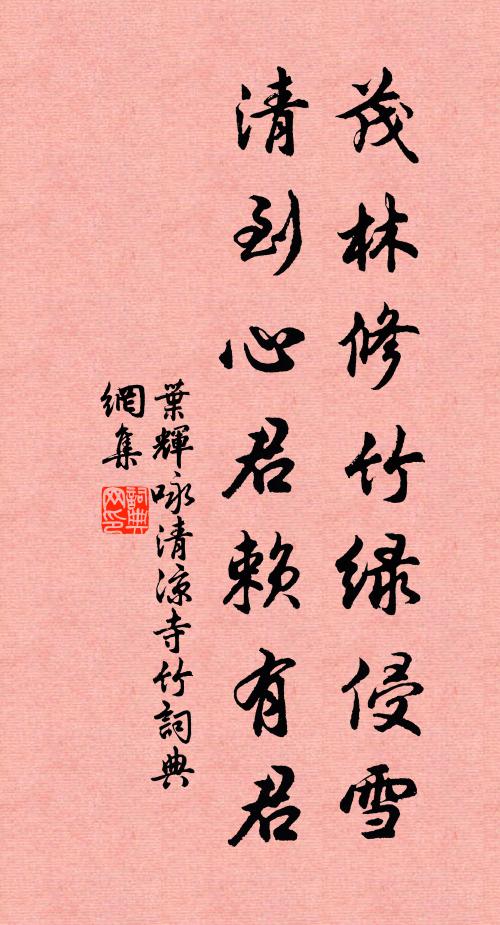 茂林修竹緑侵雪
清到心君赖有君
葉輝咏清凉寺竹詞典
網集
詞典
网印